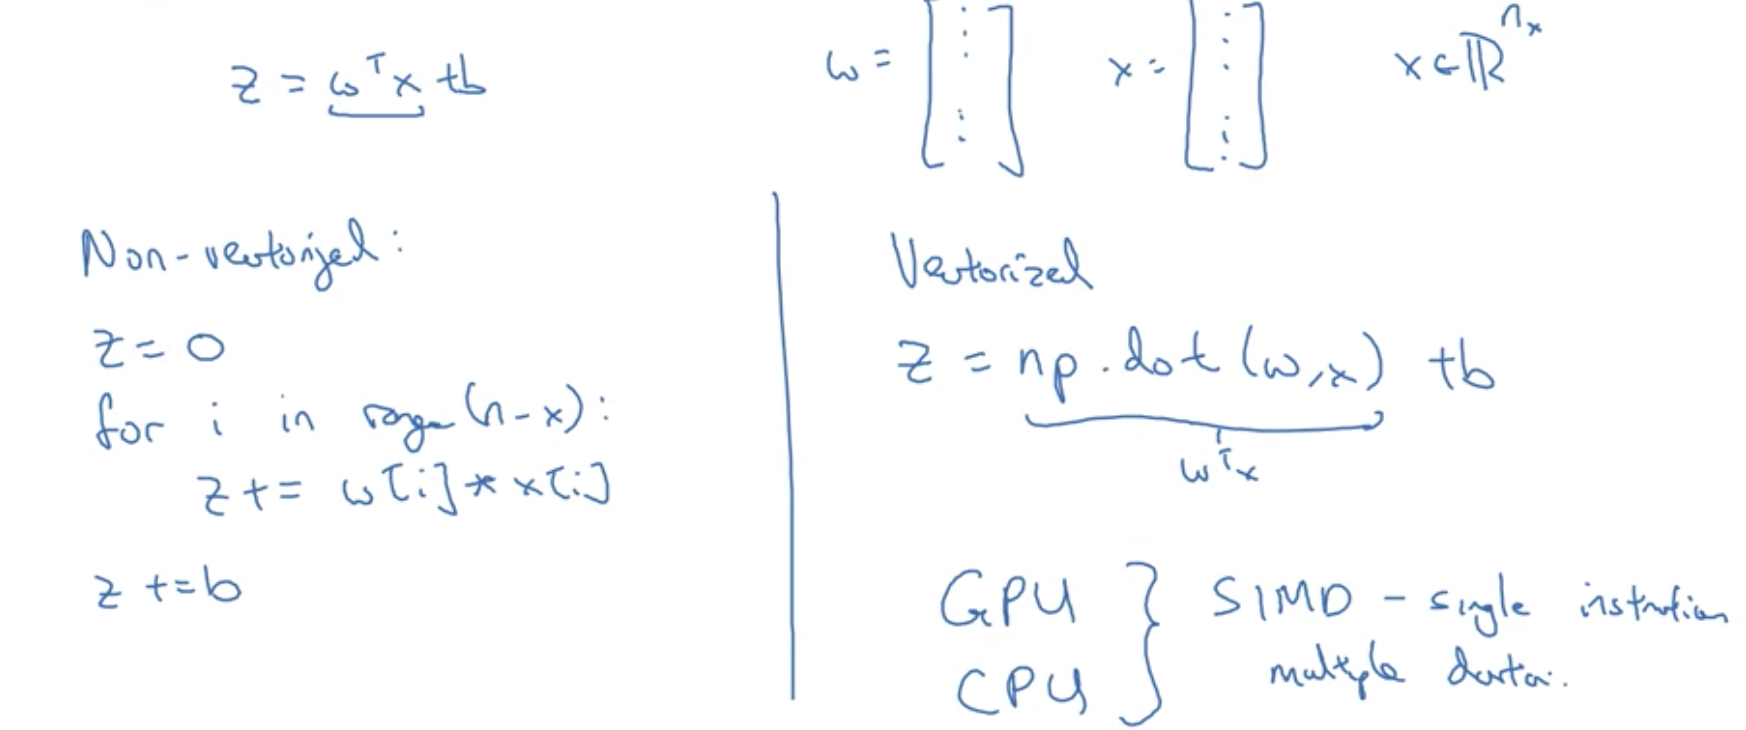 z = wᵀx + b
w = [⋮ ⋮] x = [⋮ ⋮] x ∈ ℝⁿˣ
Non-vectorized:
z = 0
for i in range(n-x):
z += w[i] * x[i]
z += b
Vectorized
z = np.dot(w,x) + b
wᵀx
GPU
CPU
} SIMD - single instruction
multiple data.